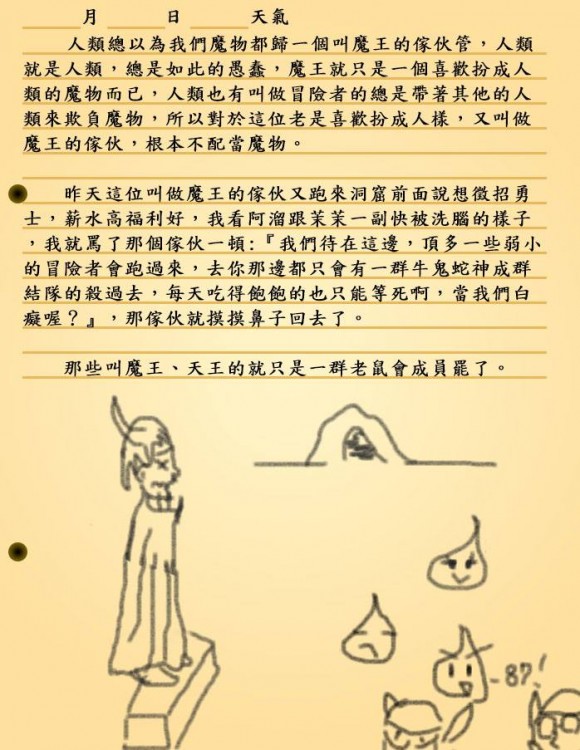 月　日　天氣
人類總以為我們魔物都歸一個叫魔王的傢伙管，人類
就是人類，總是如此的愚蠢，魔王就只是一個喜歡扮成人
類的魔物而已，人類也有叫做冒險者的總是帶著其他的人
類來欺負魔物，所以對於這位老是喜歡扮成人樣，又叫做
魔王的傢伙，根本不配當魔物。
昨天這位叫做魔王的傢伙又跑來洞窟前面說想徵招勇
士，薪水高福利好，我看阿溜跟茉茉一副快被洗腦的樣子
，我就罵了那個傢伙一頓:『我們待在這邊，頂多一些弱小
的冒險者會跑過來，去你那邊都只會有一群牛鬼蛇神成群
結隊的殺過去，每天吃得飽飽的也只能等死啊，當我們白
癡喔？』，那傢伙就摸摸鼻子回去了。
那些叫魔王、天王的就只是一群老鼠會成員罷了。
-87!